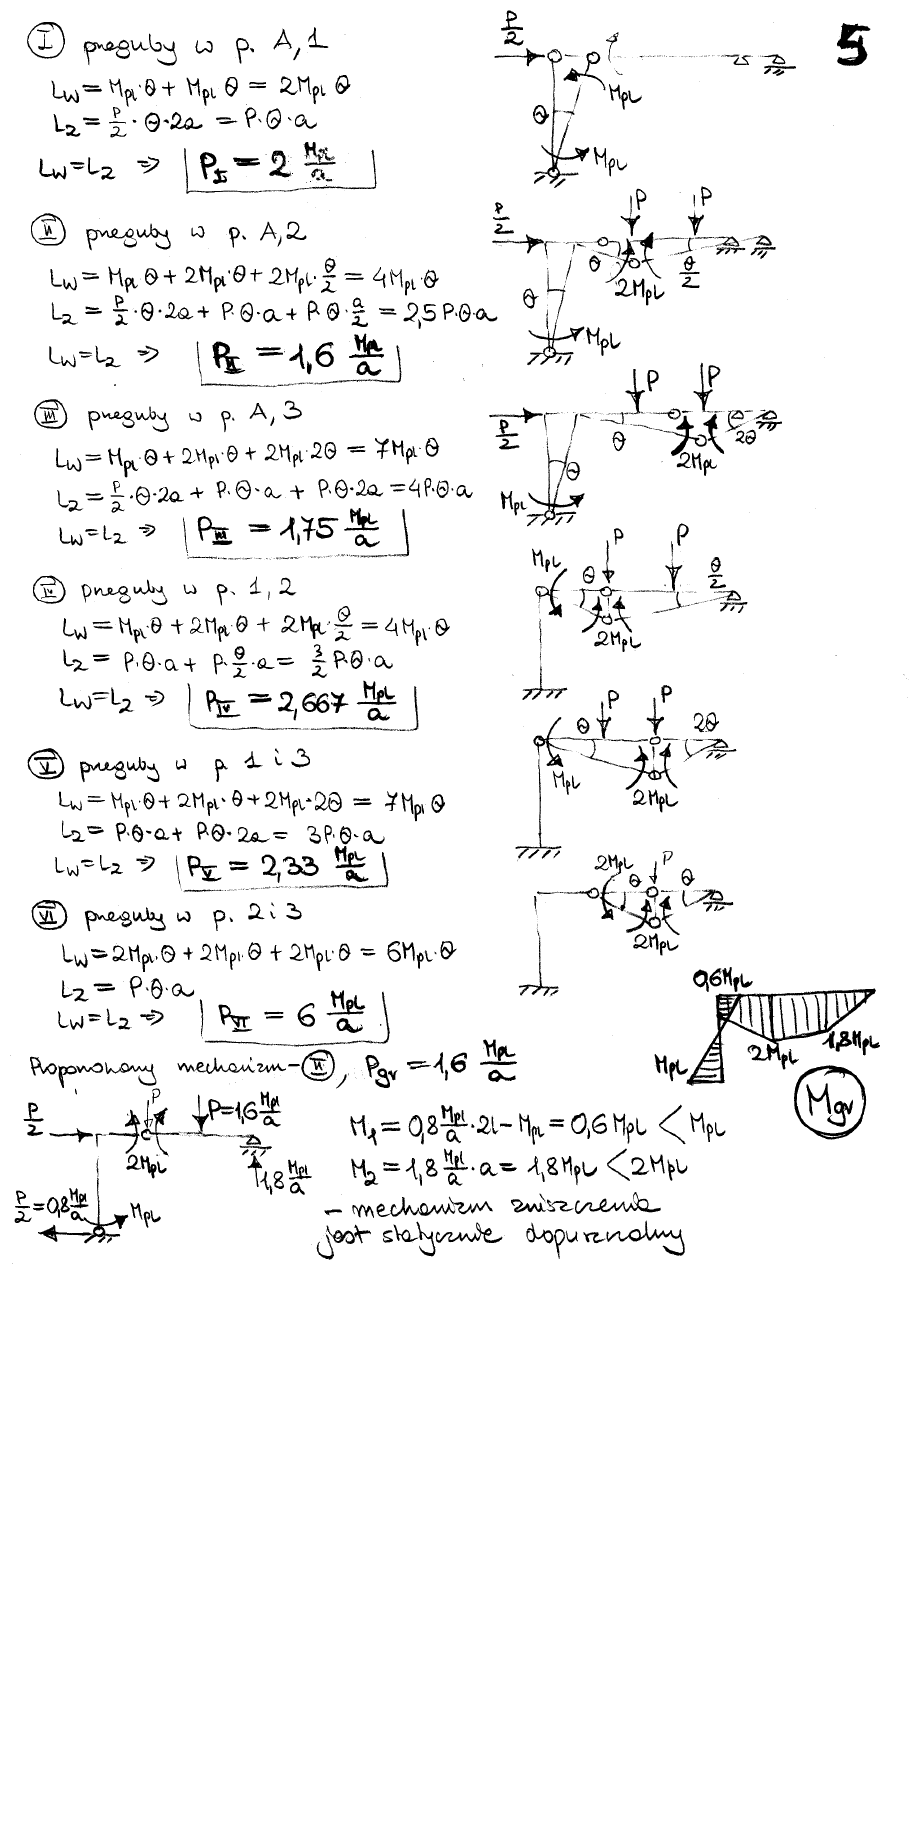 5
I przeguby w p. A,1
Lw = Mpl·θ + Mpl θ = 2Mpl θ
Lz = P/2 · θ·2a = P·θ·a
Lw = Lz ⇒ PI = 2 Mpl/a
P/2
θ
Mpl
Mpl
II przeguby w p. A,2
Lw = Mpl θ + 2Mpl·θ + 2Mpl·θ/2 = 4Mpl·θ
Lz = P/2·θ·2a + P·θ·a + P·θ·a/2 = 2,5P·θ·a
Lw = Lz ⇒ PII = 1,6 Mpl/a
P/2
P
P
θ
θ
θ/2
2Mpl
Mpl
III przeguby w p. A,3
Lw = Mpl·θ + 2Mpl·θ + 2Mpl·2θ = 7Mpl·θ
Lz = P/2·θ·2a + P·θ·a + P·θ·2a = 4P·θ·a
Lw = Lz ⇒ PIII = 1,75 Mpl/a
P/2
P
P
θ
2θ
2Mpl
θ
Mpl
IV przeguby w p. 1,2
Lw = Mpl·θ + 2Mpl·θ + 2Mpl·θ/2 = 4Mpl·θ
Lz = P·θ·a + P·θ/2·a = 3/2 P·θ·a
Lw = Lz ⇒ PIV = 2,667 Mpl/a
Mpl
P
P
θ
θ/2
2Mpl
V przeguby w p 1 i 3
Lw = Mpl·θ + 2Mpl·θ + 2Mpl·2θ = 7Mpl θ
Lz = P·θ·a + P·θ·2a = 3P·θ·a
Lw = Lz ⇒ PV = 2,33 Mpl/a
P
P
θ
2θ
Mpl
2Mpl
VI przeguby w p. 2 i 3
Lw = 2Mpl·θ + 2Mpl·θ + 2Mpl·θ = 6Mpl·θ
Lz = P·θ·a
Lw = Lz ⇒ PVI = 6 Mpl/a
2Mpl
P
θ
θ
2Mpl
0,6Mpl
Mpl
2Mpl
1,8Mpl
Mgr
Proponowany mechanizm – II, Pgr = 1,6 Mpl/a
P/2
P
P=1,6 Mpl/a
2Mpl
1,8 Mpl/a
P/2 = 0,8 Mpl/a
Mpl
M1 = 0,8 Mpl/a · 2l – Mpl = 0,6 Mpl < Mpl
M2 = 1,8 Mpl/a · a = 1,8Mpl < 2Mpl
– mechanizm zniszczenia
jest statycznie dopuszczalny